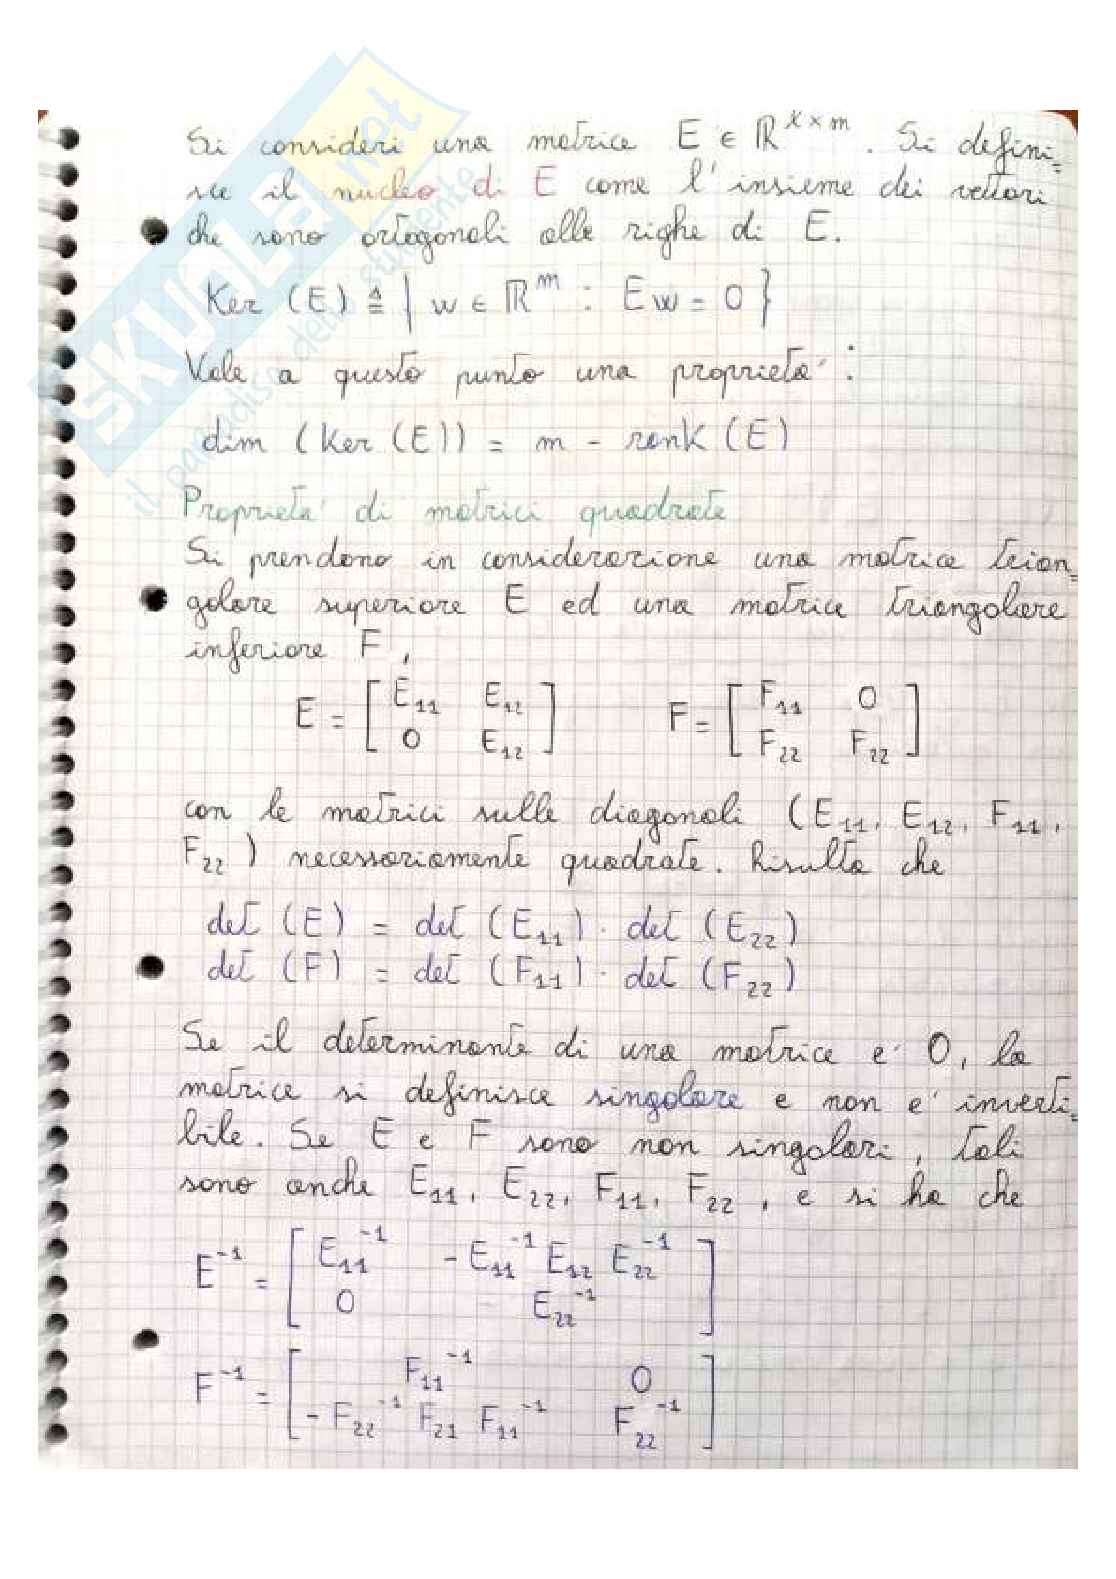 Si consideri una matrice E ∈ ℝ^{x×m}. Si defini=
sce il nucleo di E come l'insieme dei vettori
che sono ortogonali alle righe di E.
Ker (E) ≜ { w ∈ ℝ^m : Ew = 0 }
Vale a questo punto una proprieta':
dim (Ker (E)) = m - rank (E)
Proprieta' di matrici quadrate
Si prendono in considerazione una matrice trian=
golare superiore E ed una matrice triangolare
inferiore F,
E = [ E₁₁ E₁₂ ; 0 E₁₂ ] F = [ F₁₁ 0 ; F₂₂ F₂₂ ]
con le matrici sulle diagonali (E₁₁, E₁₂, F₁₁,
F₂₂) necessariamente quadrate. Risulta che
det (E) = det (E₁₁) · det (E₂₂)
det (F) = det (F₁₁) · det (F₂₂)
Se il determinante di una matrice e' 0, la
matrice si definisce singolare e non e' inverti=
bile. Se E e F sono non singolari, tali
sono anche E₁₁, E₂₂, F₁₁, F₂₂, e si ha che
E⁻¹ = [ E₁₁⁻¹ -E₁₁⁻¹ E₁₂ E₂₂⁻¹ ; 0 E₂₂⁻¹ ]
F⁻¹ = [ F₁₁⁻¹ 0 ; -F₂₂⁻¹ F₂₁ F₁₁⁻¹ F₂₂⁻¹ ]
SKUOLA.net
il paradiso dello studente